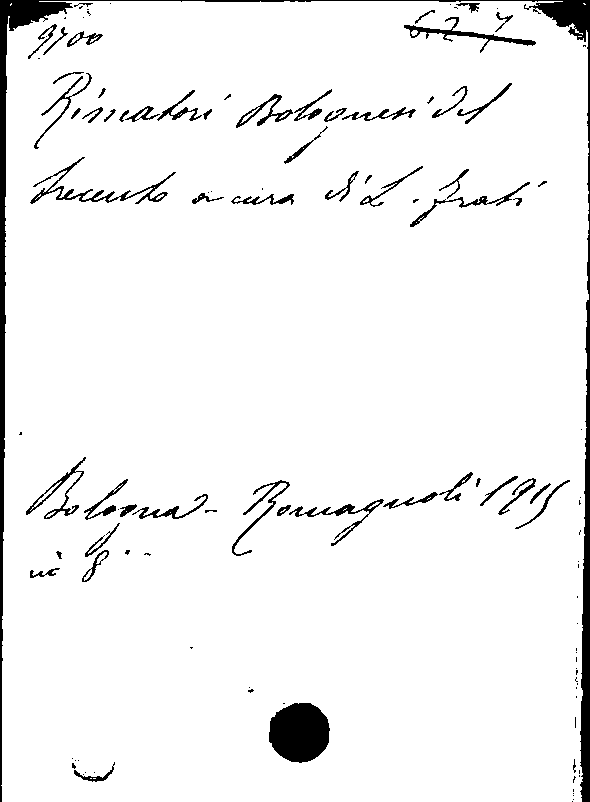 9700 6.2 7
Rimatori Bolognesi del
trecento a cura di L. Frati
Bologna - Romagnoli 1915
in 8°-